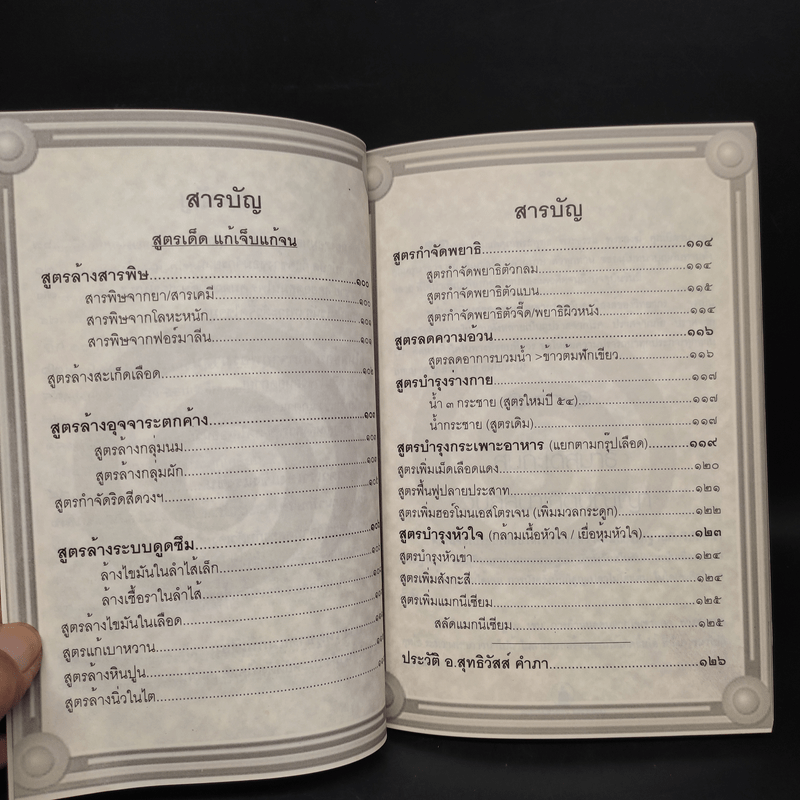 สารบัญ
สูตรเด็ด แก้เจ็บแก้จน
สูตรล้างสารพิษ..............................๑๐๐
สารพิษจากยา/สารเคมี..............................
สารพิษจากโลหะหนัก..............................
สารพิษจากฟอร์มาลีน..............................
สูตรล้างสะเก็ดเลือด..............................
สูตรล้างอุจจาระตกค้าง..............................
สูตรล้างกลุ่มนม..............................
สูตรล้างกลุ่มผัก..............................
สูตรกำจัดริดสีดวงฯ..............................
สูตรล้างระบบดูดซึม..............................
ล้างไขมันในลำไส้เล็ก..............................
ล้างเชื้อราในลำไส้..............................
สูตรล้างไขมันในเลือด..............................
สูตรแก้เบาหวาน..............................
สูตรล้างหินปูน..............................
สูตรล้างนิ่วในไต..............................
สารบัญ
สูตรกำจัดพยาธิ..............................๑๑๔
สูตรกำจัดพยาธิตัวกลม..............................๑๑๔
สูตรกำจัดพยาธิตัวแบน..............................๑๑๕
สูตรกำจัดพยาธิตัวจี๊ด/พยาธิผิวหนัง..............................๑๑๔
สูตรลดความอ้วน..............................๑๑๖
สูตรลดอาการบวมน้ำ >ข้าวต้มฟักเขียว..............................๑๑๖
สูตรบำรุงร่างกาย..............................๑๑๗
น้ำ ๓ กระชาย (สูตรใหม่ปี ๕๔)..............................๑๑๗
น้ำกระชาย (สูตรเดิม)..............................๑๑๗
สูตรบำรุงกระเพาะอาหาร (แยกตามกรุ๊ปเลือด)..............................๑๑๙
สูตรเพิ่มเม็ดเลือดแดง..............................๑๒๐
สูตรฟื้นฟูปลายประสาท..............................๑๒๑
สูตรเพิ่มฮอร์โมนเอสโตรเจน (เพิ่มมวลกระดูก)..............................๑๒๒
สูตรบำรุงหัวใจ (กล้ามเนื้อหัวใจ / เยื่อหุ้มหัวใจ)..............................๑๒๓
สูตรบำรุงหัวเข่า..............................๑๒๔
สูตรเพิ่มสังกะสี..............................๑๒๔
สูตรเพิ่มแมกนีเซียม..............................๑๒๕
สลัดแมกนีเซียม..............................๑๒๕
ประวัติ อ.สุทธิวัสส์ คำภา..............................๑๒๖